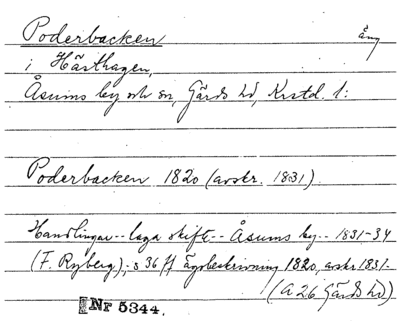 Poderbacken äng
i Hästhagen,
Åsums by och sn, Gärds hd, Krstd. l:
Poderbacken 1820 (avskr. 1831)
Handlingar -- laga skifte -- Åsums by -- 1831-34
(F. Ryberg), s 36 ff Ägobeskrivning 1820, avskr 1831.
(A 26 Gärds hd)
Nr 5344.